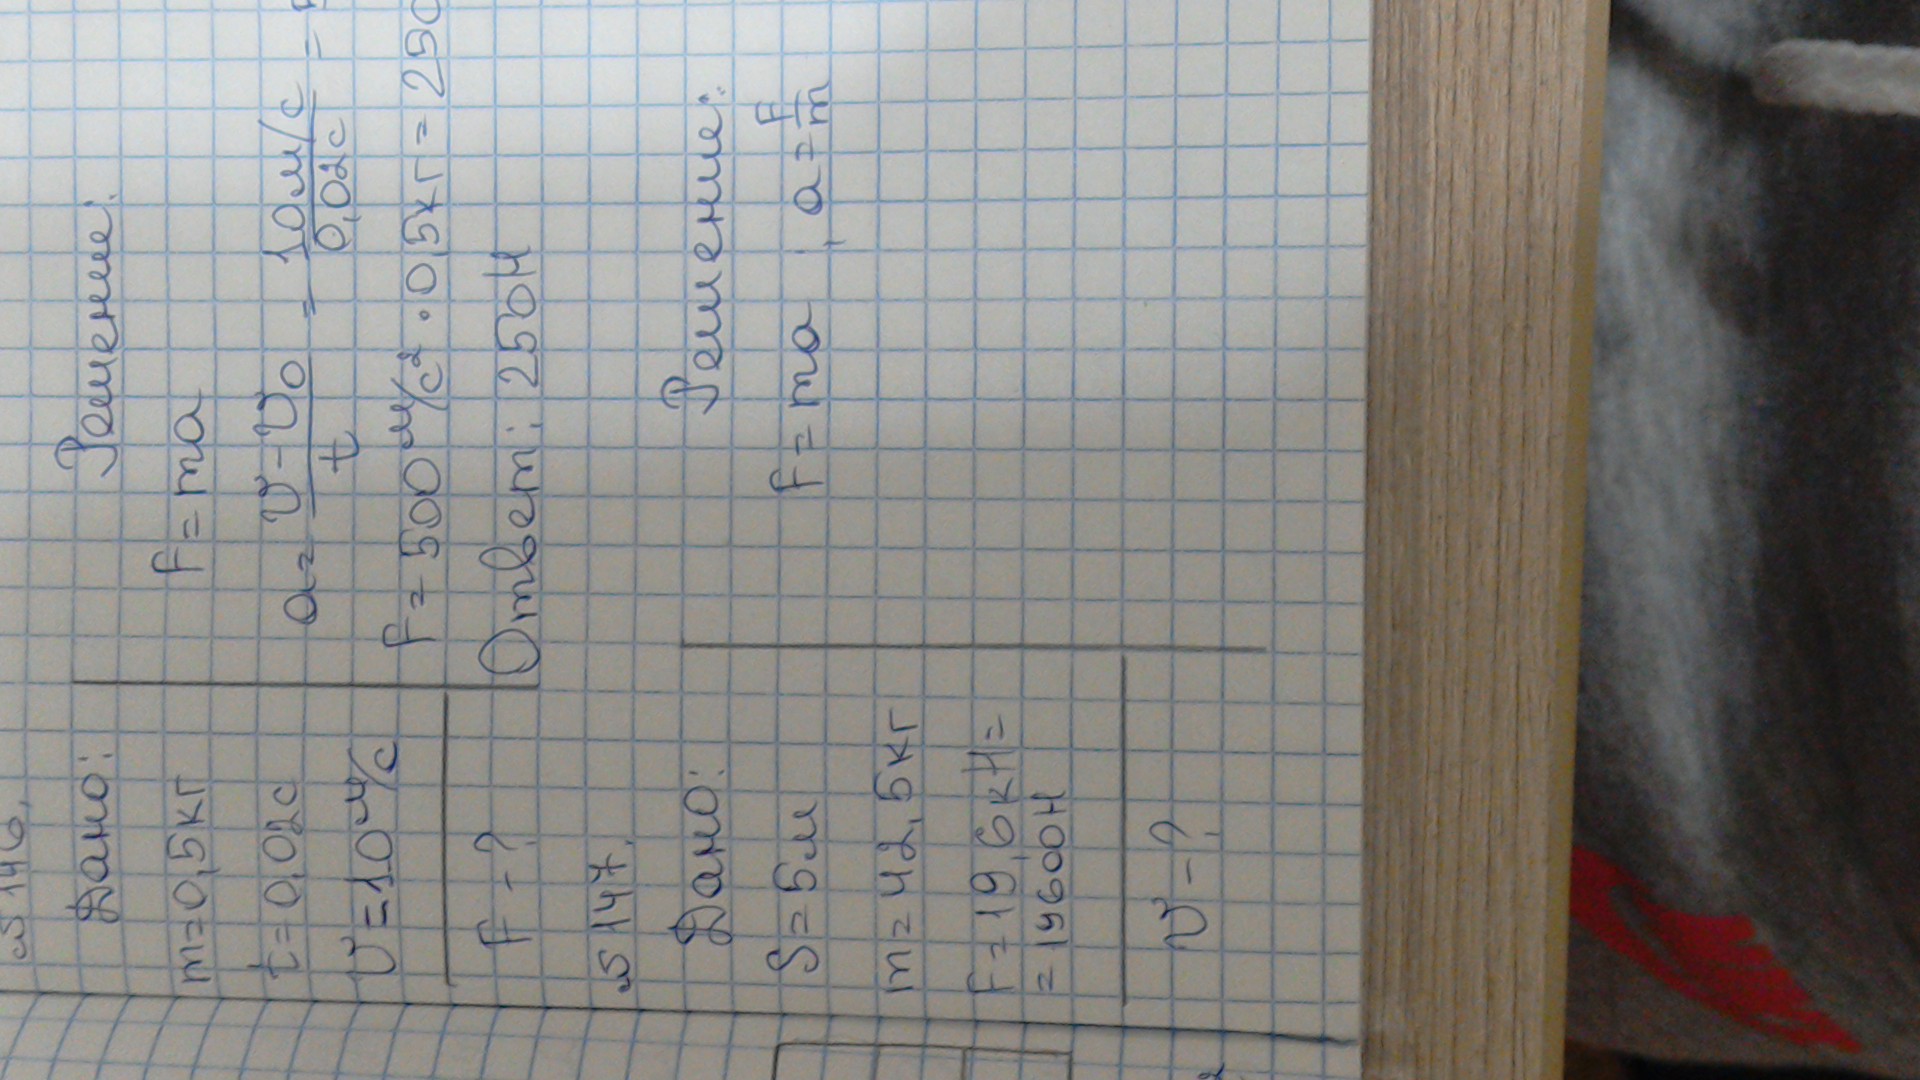 № 146.
Дано:
m=0,5кг
t=0,02с
υ=10м/с
F-?
Решение:
F=ma
a= υ-υ₀/t = 10м/с/0,02с =
F=500м/с²·0,5кг=250
Ответ: 250Н
№ 147.
Дано:
S=5м
m=42,5кг
F=19,6кН=
=19600Н
υ-?
Решение:
F=ma, a=F/m